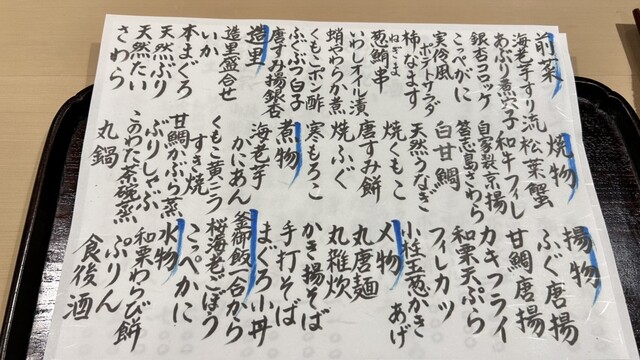 前菜
海老芋すり流し
あぶり煮穴子
銀杏コロッケ
こっぺがに
実伶風
ポテトサラダ
柿なます
ねぎま
葱鮪串
いわしオイル漬
蛸やわらか煮
くもこポン酢
ふくぶつ白子
唐すみ揚銀杏
造里
造里盛合せ
いか
本まぐろ
天然ぶり
天然たい
さわら
焼物
松葉蟹
和牛フィレ
自家製京揚
答志島さわら
白甘鯛
天然うなぎ
焼くもこ
唐すみ餅
焼ふぐ
寒もろこ
煮物
海老芋
かにあん
くもこ黄ニラ
すき焼
甘鯛かぶら蒸
ぶりしゃぶ
このわた茶碗蒸
丸鍋
揚物
ふぐ唐揚
甘鯛唐揚
カキフライ
和栗天ぷら
フィレカツ
小柱玉葱かき
あげ
〆物
丸唐麺
丸雑炊
かき揚そば
手打そば
まぐろ小丼
釜御飯一合から
桜海老ごぼう
こっぺかに
水物
和栗わらび餅
ぷりん
食後酒